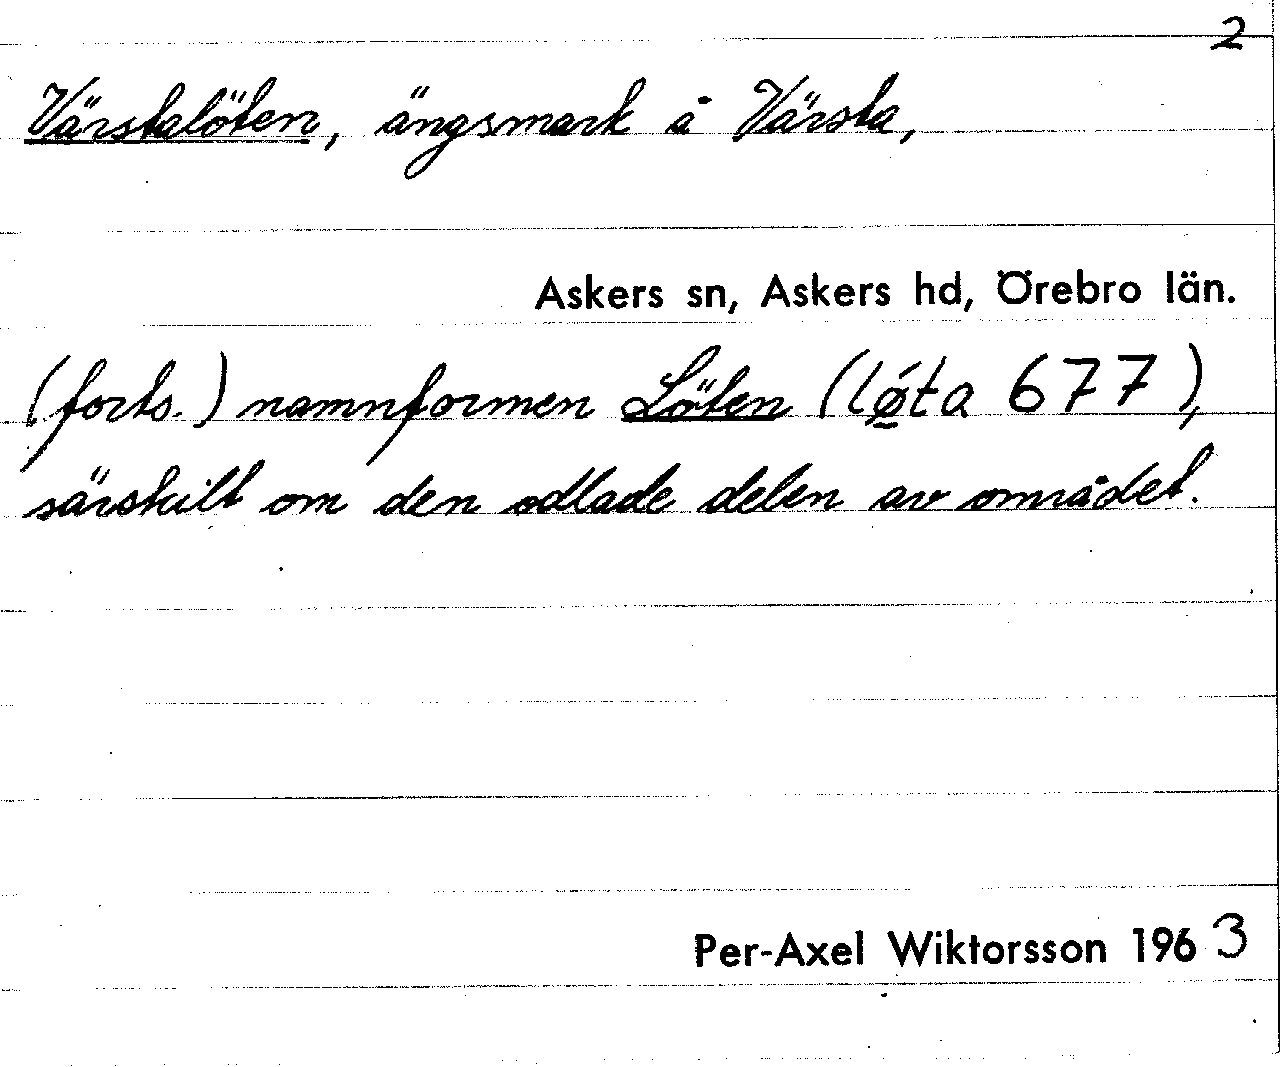 2
Värstalöten, ängsmark å Värsta,
Askers sn, Askers hd, Örebro län.
(forts.) namnformen Löten (lǿ̱ta 677),
särskilt om den odlade delen av området.
Per-Axel Wiktorsson 1963